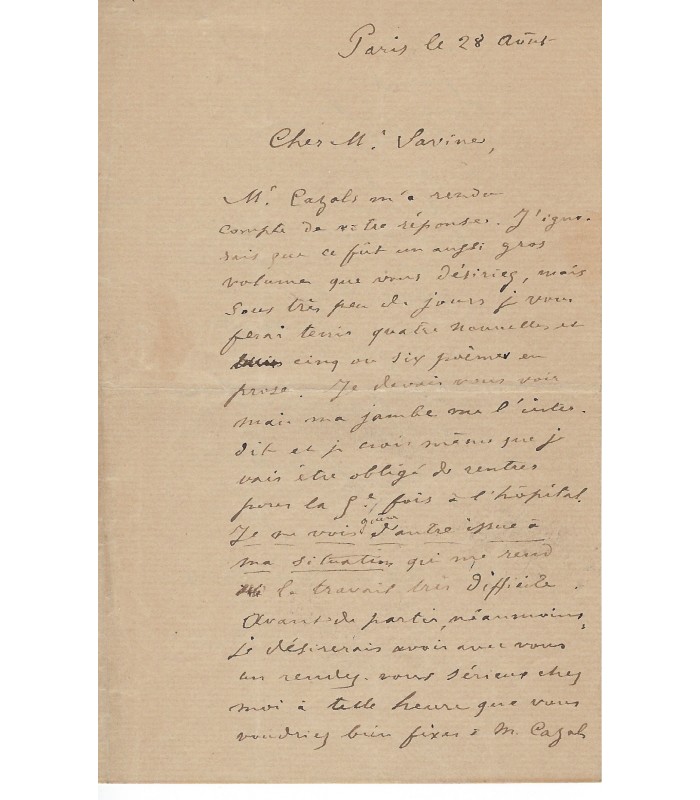 Paris le 28 Août
Cher Mr Savine,
Mr Cazals m'a rendu
compte de votre réponse. J'igno-
rais que ce fût un aussi gros
volume que vous désiriez, mais
sous très peu de jours je vous
ferai tenir quatre nouvelles et
cinq ou six poèmes en
prose. Je devais vous voir
mais ma jambe me l'inter-
dit et je crois même que je
vais être obligé de rentrer
pour la 5e fois à l'hôpital.
Je ne vois guère d'autre issue à
ma situation qui me rend
le travail très difficile.
Avant de partir, néanmoins,
je désirerais avoir avec vous
un rendez-vous sérieux chez
moi à telle heure que vous
voudriez bien fixer à M. Cazals